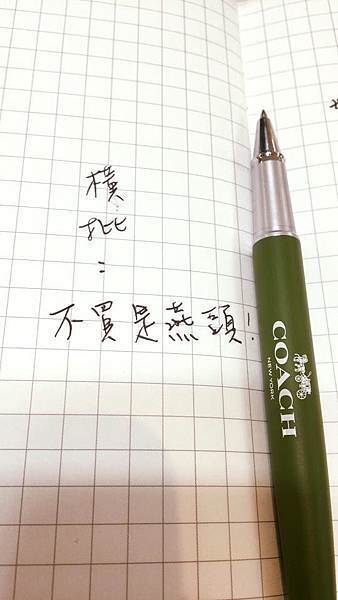 橫
批
:
不買是燕頭!
COACH
NEW YORK